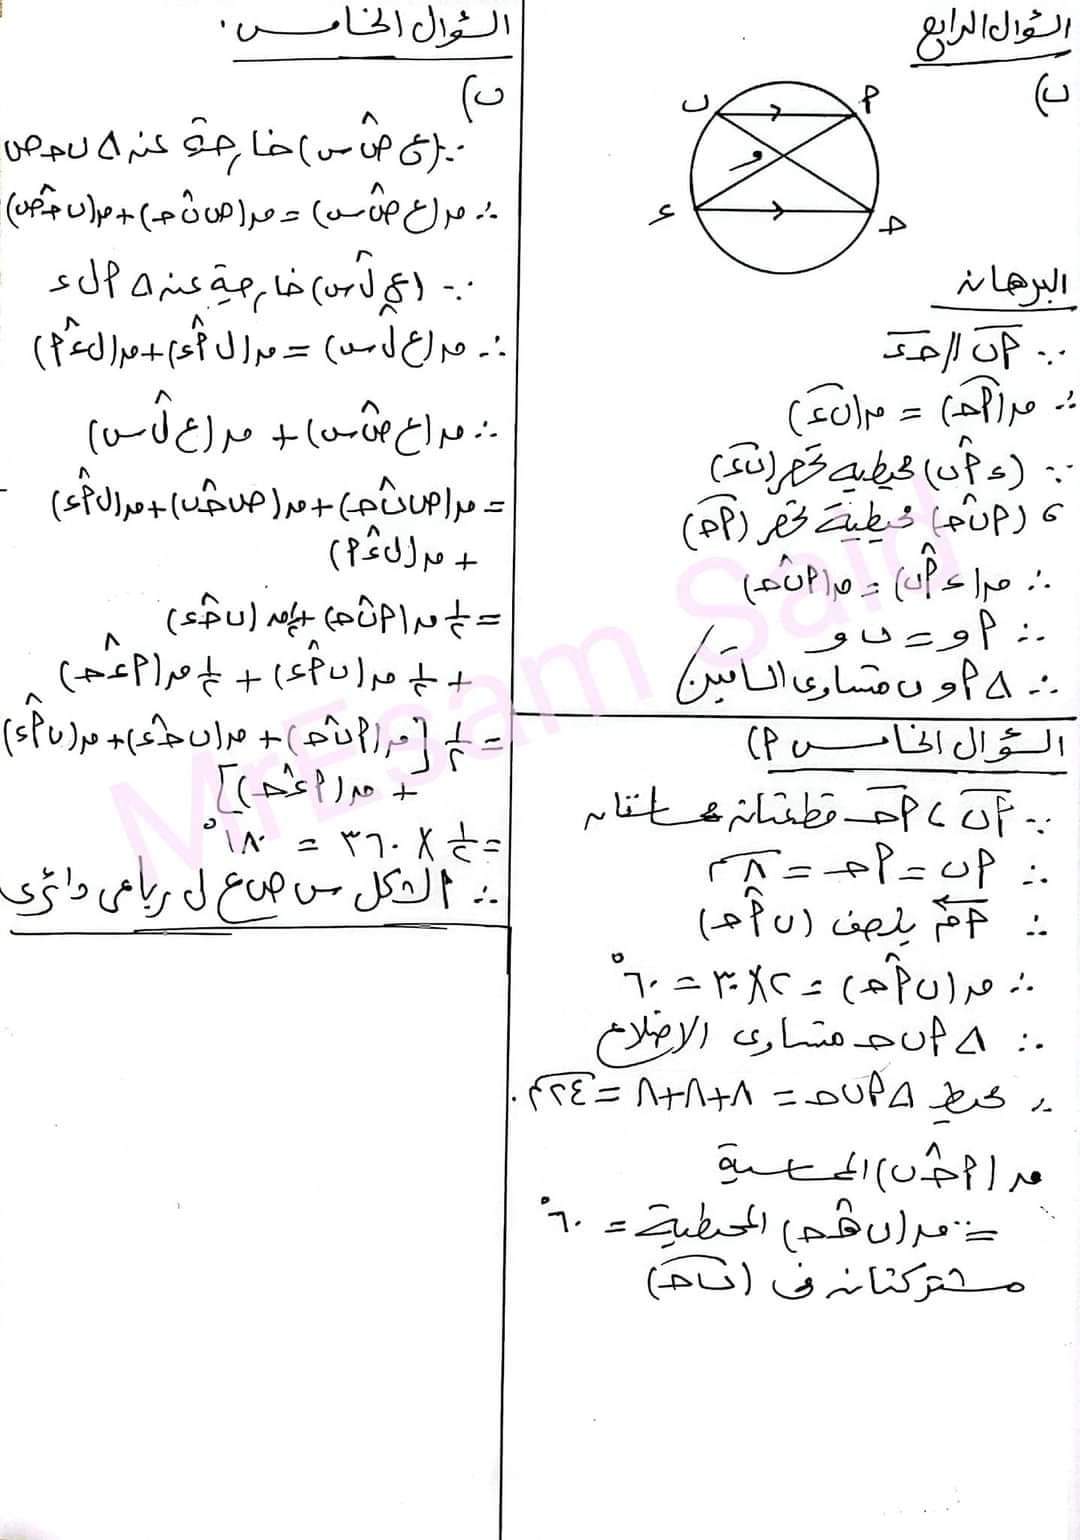 السؤال الرابع
ب)
أ
ب
و
ء
حـ
البرهان
∵ أب // حـء
∴ م(أحـ) = م(بء)
∵ (ء أ ب) محيطية تحصر (بء)
، (أ ب حـ) محيطية تحصر (أحـ)
∴ م(ء أ ب) = م(أ ب حـ)
∴ أو = ب و
∴ △ أ و ب متساوى الساقين
السؤال الخامس أ)
∵ أب ، أحـ قطعتان مماستان
∴ أب = أحـ = ٨ سم
∴ أم ينصف (ب أ حـ)
∴ م(ب أ حـ) = ٢×٣٠ = ٦٠°
∴ △ أ ب حـ متساوى الاضلاع
∴ محيط △ أ ب حـ = ٨+٨+٨ = ٢٤سم.
م(أ حـ ب) المماسية
= م(ب هـ حـ) المحيطية = ٦٠°
مشتركتان فى (ب حـ)
السؤال الخامس
ب)
∵ (ع ص س) خارجة عن △ ب حـ ص
∴ م(ع ص س) = م(ص ب حـ) + م(ب حـ ص)
∵ (ع ل س) خارجة عن △ أ ل ء
∴ م(ع ل س) = م(ل أ ء) + م(ل ء أ)
∴ م(ع ص س) + م(ع ل س)
= م(ص ب حـ) + م(ص حـ ب) + م(ل أ ء)
+ م(ل ء أ)
= ½ م(أ ب حـ) + ½ م(ب حـ ء)
+ ½ م(ب أ ء) + ½ م(أ ء حـ)
= ½ [م(أ ب حـ) + م(ب حـ ء) + م(ب أ ء)
+ م(أ ء حـ)]
= ½ × ٣٦٠ = ١٨٠°
∴ الشكل س ص ع ل رباعى دائرى
MrEsam Said